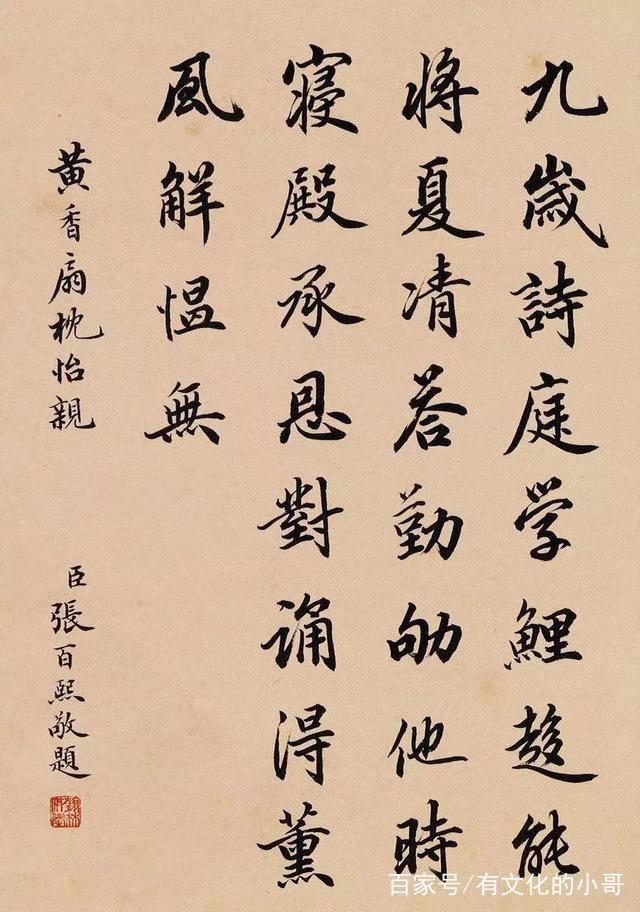 九歲詩庭学鯉趍能
将夏凊答勤劬他時
寢殿承恩對誦得薰
風解愠無
黄香扇枕怡親
臣張百熙敬題
百家号/有文化的小哥